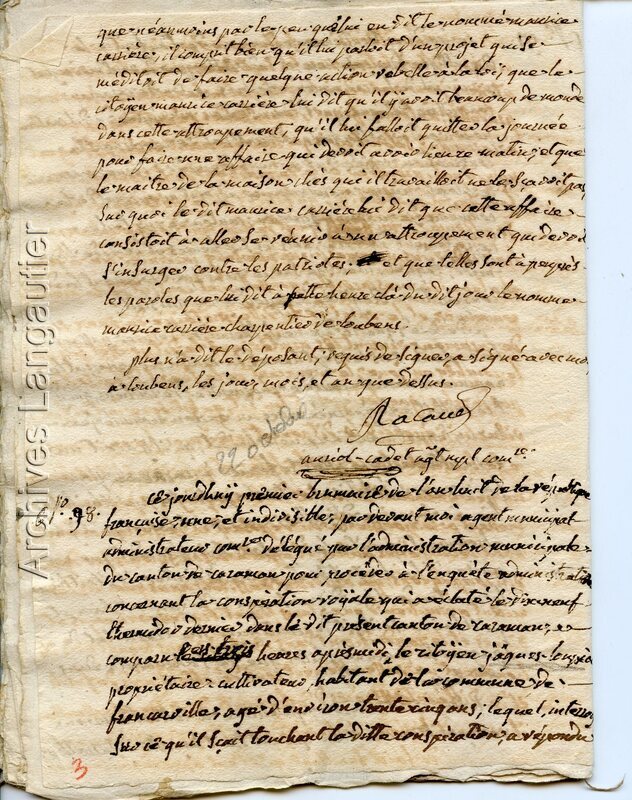 que néanmoins par le peu qu'elui en dit le nommé maurice
carrière, il comprit bien qu'il lui parloit d'un projet qui se
méditoit de faire quelque action rebelle à la loi; que le
citoyen maurice carrière lui dit qu'il y avoit beaucoup de monde
dans cette attroupement, qu'il lui falloit quitter la journée
pour faire une affaire qui devoit avoir lieu ce matin, et que
le maitre de la maison chés qui il travailloit ne le sçavoit pas
sur quoi le dit maurice carrière lui dit que cette affaire
consistoit à aller se réunir à un attroupement qui devoit
s'insurger contre les patriotes; et que telles sont à peu près
les paroles que lui dit à cette heure là du dit jour le nommé
maurice carrière charpentier de loubens.
plus n'a dit le déposant; requis de signer, a signé avec moi
à loubens, les jour, mois, et an que dessus.
22 octobre
auriol-cadet agt mpl comre
Ce jourdhuy premier brumaire de l'an huit de la république
No. 98.
française, une, et indivisible, pardevant moi agent municipal
administrateur comre délégué par l'administration municipale
du canton de caraman pour procéder à l'enquête administrative
concernant la conspiration royale qui a éclaté le dixneuf
thermidor dernier dans le dit présent canton de caraman, a
comparu heures aprésmidi le citoyen jâques
propriétaire cultivateur, habitant de la commune de
francarville, age d'environ trente cinq ans; lequel, interrogé
sur ce qu'il sçait touchant la ditte conspiration, a répondu
3
Archives Langautier